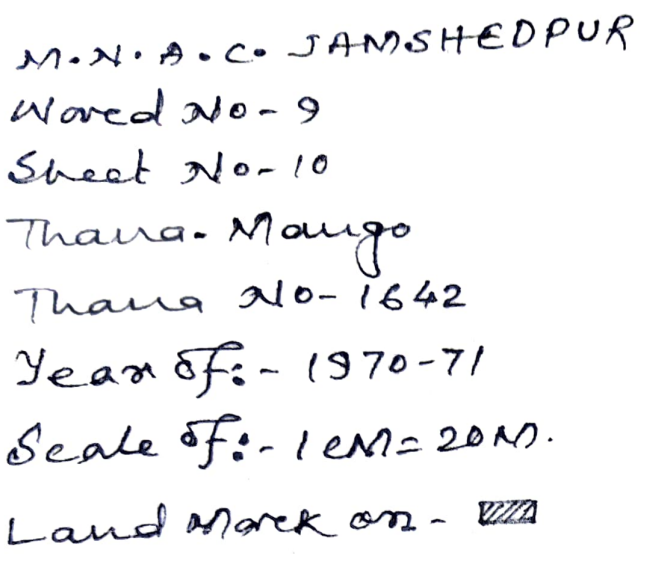 M.N.A.C. JAMSHEDPUR
Wored No-9
Sheet No-10
Thana-Mango
Thana No-1642
Year of:-1970-71
Scale of:-1cM=20M.
Land Mark on-